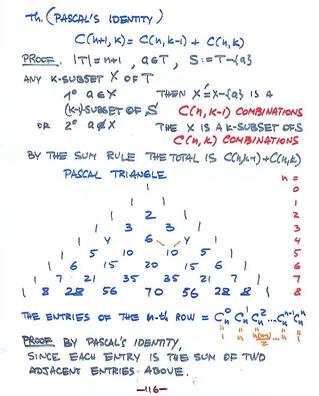 Th. (PASCAL'S IDENTITY)
C(n+1, k) = C(n, k-1) + C(n, k)
PROOF. |T| = n+1, a∈T, S := T-{a}
ANY K-SUBSET X OF T
1° a∈X THEN X'=X-{a} IS A
(k-1)-SUBSET OF S C(n, k-1) COMBINATIONS
OR 2° a∉X THE X IS A K-SUBSET OF S
C(n, k) COMBINATIONS
BY THE SUM RULE THE TOTAL IS C(n,k-1)+C(n,k)
PASCAL TRIANGLE n =
1 0
1 1 1
1 2 1 2
1 3 3 1 3
1 4 6 4 1 4
1 5 10 10 5 1 5
1 6 15 20 15 6 1 6
1 7 21 35 35 21 7 1 7
1 8 28 56 70 56 28 8 1 8
THE ENTRIES OF THE n-th ROW = C_n^0 C_n^1 C_n^2 ... C_n^{n-1} C_n^n
1 n n(n-1)/2 n 1
PROOF BY PASCAL'S IDENTITY,
SINCE EACH ENTRY IS THE SUM OF TWO
ADJACENT ENTRIES ABOVE.
-116-